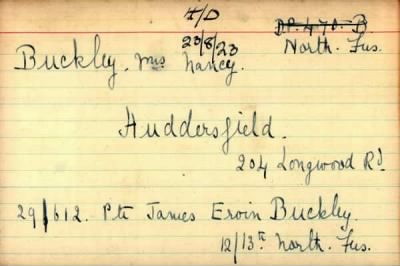 H/D
23/8/23
D.P. 470. B
North. Fus.
Buckley. Mrs Nancy.
Huddersfield.
204 Longwood Rd
29/612. Pte James Ervin Buckley.
12/13th North. Fus.